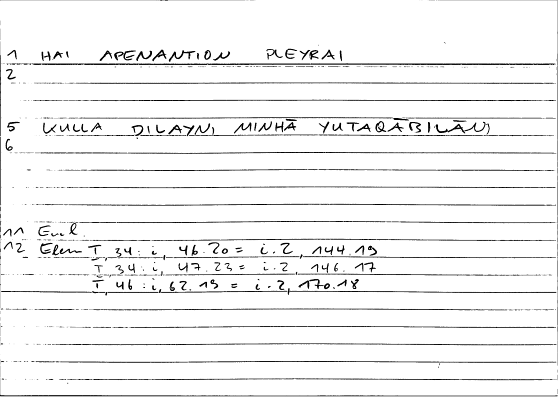 1 HAI APENANTION PLEYRAI
2
5 KULLA DILAYNI MINHĀ YUTAQĀBILĀNI
6
11 Eucl.
12 Elem I, 34: i, 46.20 = i.2, 144.19
I, 34: i, 47.23 = i.2, 146.17
I, 46: i, 62.19 = i.2, 170.18